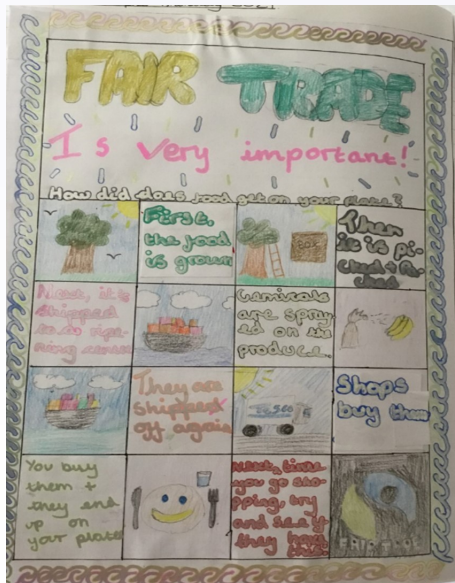 FAIR TRADE
Is very important!
How did does food get on your plate?
First,
the food
is grown
BOX
Then
it is pi-
cked + Pa-
cked
Next, it is
shipped
to a ripe-
ning
Cemicals
are spray-
ed on the
produce.
They are
shipped
off again
Shops
buy them
You buy
them +
they end
up on
your plate
Next, time
you go sho-
pping, try
and see if
they have
this!
FAIRTRADE